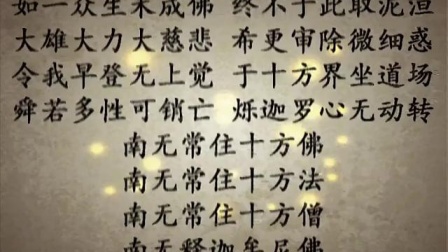 如一众生未成佛 终不于此取泥洹
大雄大力大慈悲 希更审除微细惑
令我早登无上觉 于十方界坐道场
舜若多性可销亡 烁迦罗心无动转
南无常住十方佛
南无常住十方法
南无常住十方僧
南无释迦牟尼佛